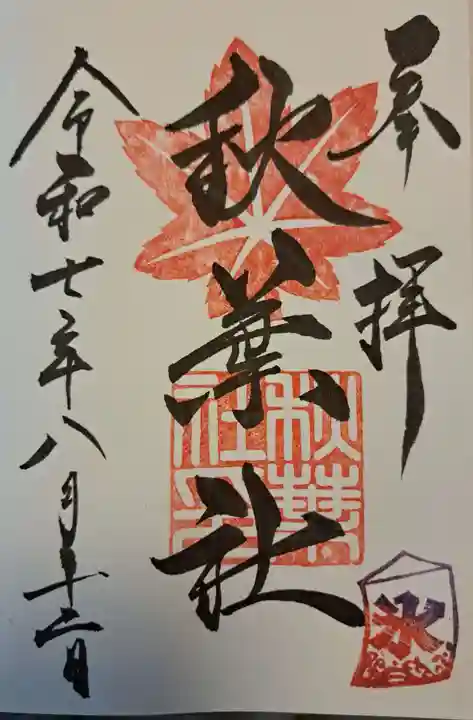 奉拝
秋葉社
秋葉社印
令和七年八月十二日
氷